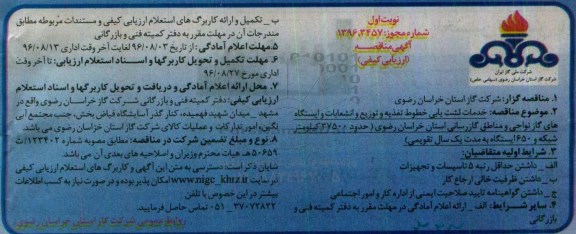 نوبت اول
شماره مجوز: ۱۳۹۶،۳۴۵۷
آگهی مناقصه
(ارزیابی کیفی)
شرکت ملی گاز ایران
شرکت گاز استان خراسان رضوی (سهامی خاص)
۱. مناقصه گزار: شرکت گاز استان خراسان رضوی
۲. موضوع مناقصه: خدمات نشت یابی خطوط تغذیه و توزیع و انشعابات و ایستگاه
های گاز نواحی و مناطق گازرسانی استان خراسان رضوی (حدود ۴۷۵۰۰ کیلومتر
شبکه و ۶۵۰ ایستگاه به مدت یک سال تقویمی)
۳. شرایط اولیه متقاضیان:
الف _ داشتن حداقل رتبه ۵ تاسیسات و تجهیزات
ب _ داشتن ظرفیت خالی ارجاع کار
ج _ داشتن گواهینامه تایید صلاحیت ایمنی از اداره کار و امور اجتماعی
۴. سایر شرایط: الف _ ارائه اعلام آمادگی در مهلت مقرر به دفتر کمیته فنی و
بازرگانی
ب _ تکمیل و ارائه کاربرگ های استعلام ارزیابی کیفی و مستندات مربوطه مطابق
مندرجات آن در مهلت مقرر به دفتر کمیته فنی و بازرگانی
۵. مهلت اعلام آمادگی: از تاریخ ۹۶/۰۸/۰۳ لغایت آخر وقت اداری ۹۶/۰۸/۱۳
۶. مهلت تکمیل و تحویل کاربرگها و اسناد استعلام ارزیابی: تا آخر وقت
اداری مورخ ۹۶/۰۸/۲۷
۷. محل ارائه اعلام آمادگی و دریافت و تحویل کاربرگها و اسناد استعلام
ارزیابی کیفی: دفتر کمیته فنی و بازرگانی شرکت گاز خراسان رضوی واقع در
مشهد _ میدان شهید فهمیده، کنار گذر آسایشگاه فیاض بخش، جنب مجتمع آبی
نگین، امور تدارکات و عملیات کالای شرکت گاز استان خراسان رضوی می باشد.
۸. نوع و مبلغ تضمین شرکت در مناقصه: مطابق مصوبه شماره ۱۲۳۴۰۲/ت
۵۰۶۵۹ هـ هیات محترم وزیران و اصلاحیه های بعدی آن می باشد.
شایان ذکر است: دسترسی به متن این آگهی و کاربرگ های استعلام ارزیابی کیفی
در سایت www.nigc_khrz.ir امکان پذیر بوده و در صورت نیاز به کسب اطلاعات
بیشتر در این خصوص با تلفن
۳۷۰۷۲۸۲۲ _ ۰۵۱ تماس حاصل فرمایید.
روابط عمومی شرکت گاز استان خراسان رضوی